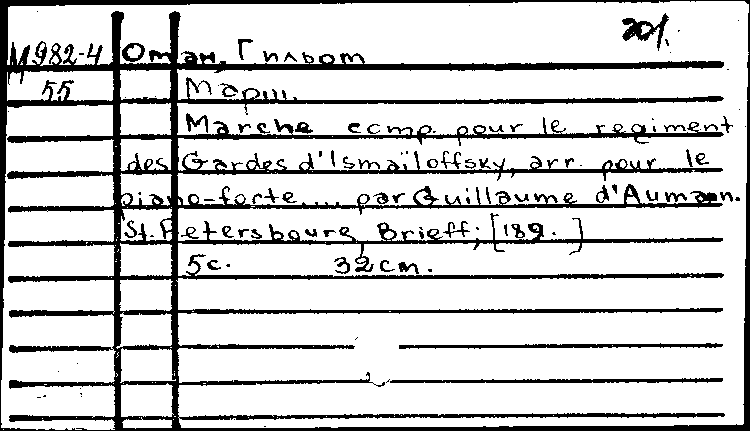 201.
М982-4 Отан, Гильом
55 Марш.
Marche comp. pour le regiment
des Gardes d'Ismaïloffsky, arr. pour le
piano-forte... par Guillaume d'Aumann.
St. Petersbourg, Brieff; [189. ]
5с. 32 cm.